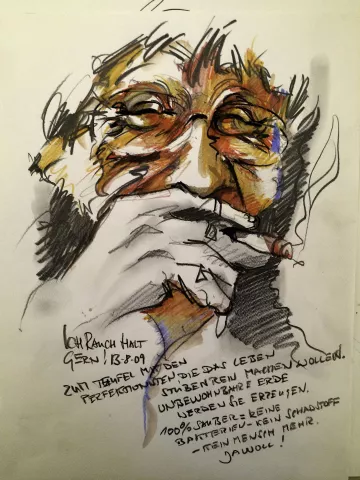 ICH RAUCH HALT
GERN! 13-8-09
ZUM TEUFEL MIT DEN
PERFEKTIONISTEN, DIE DAS LEBEN
STUBENREIN MACHEN WOLLEN.
UNBEWOHNBARE ERDE
WERDEN SIE ERZEUGEN.
100% SAUBER = KEINE
BAKTERIEN - KEIN SCHADSTOFF
- KEIN MENSCH MEHR.
JAWOLL!